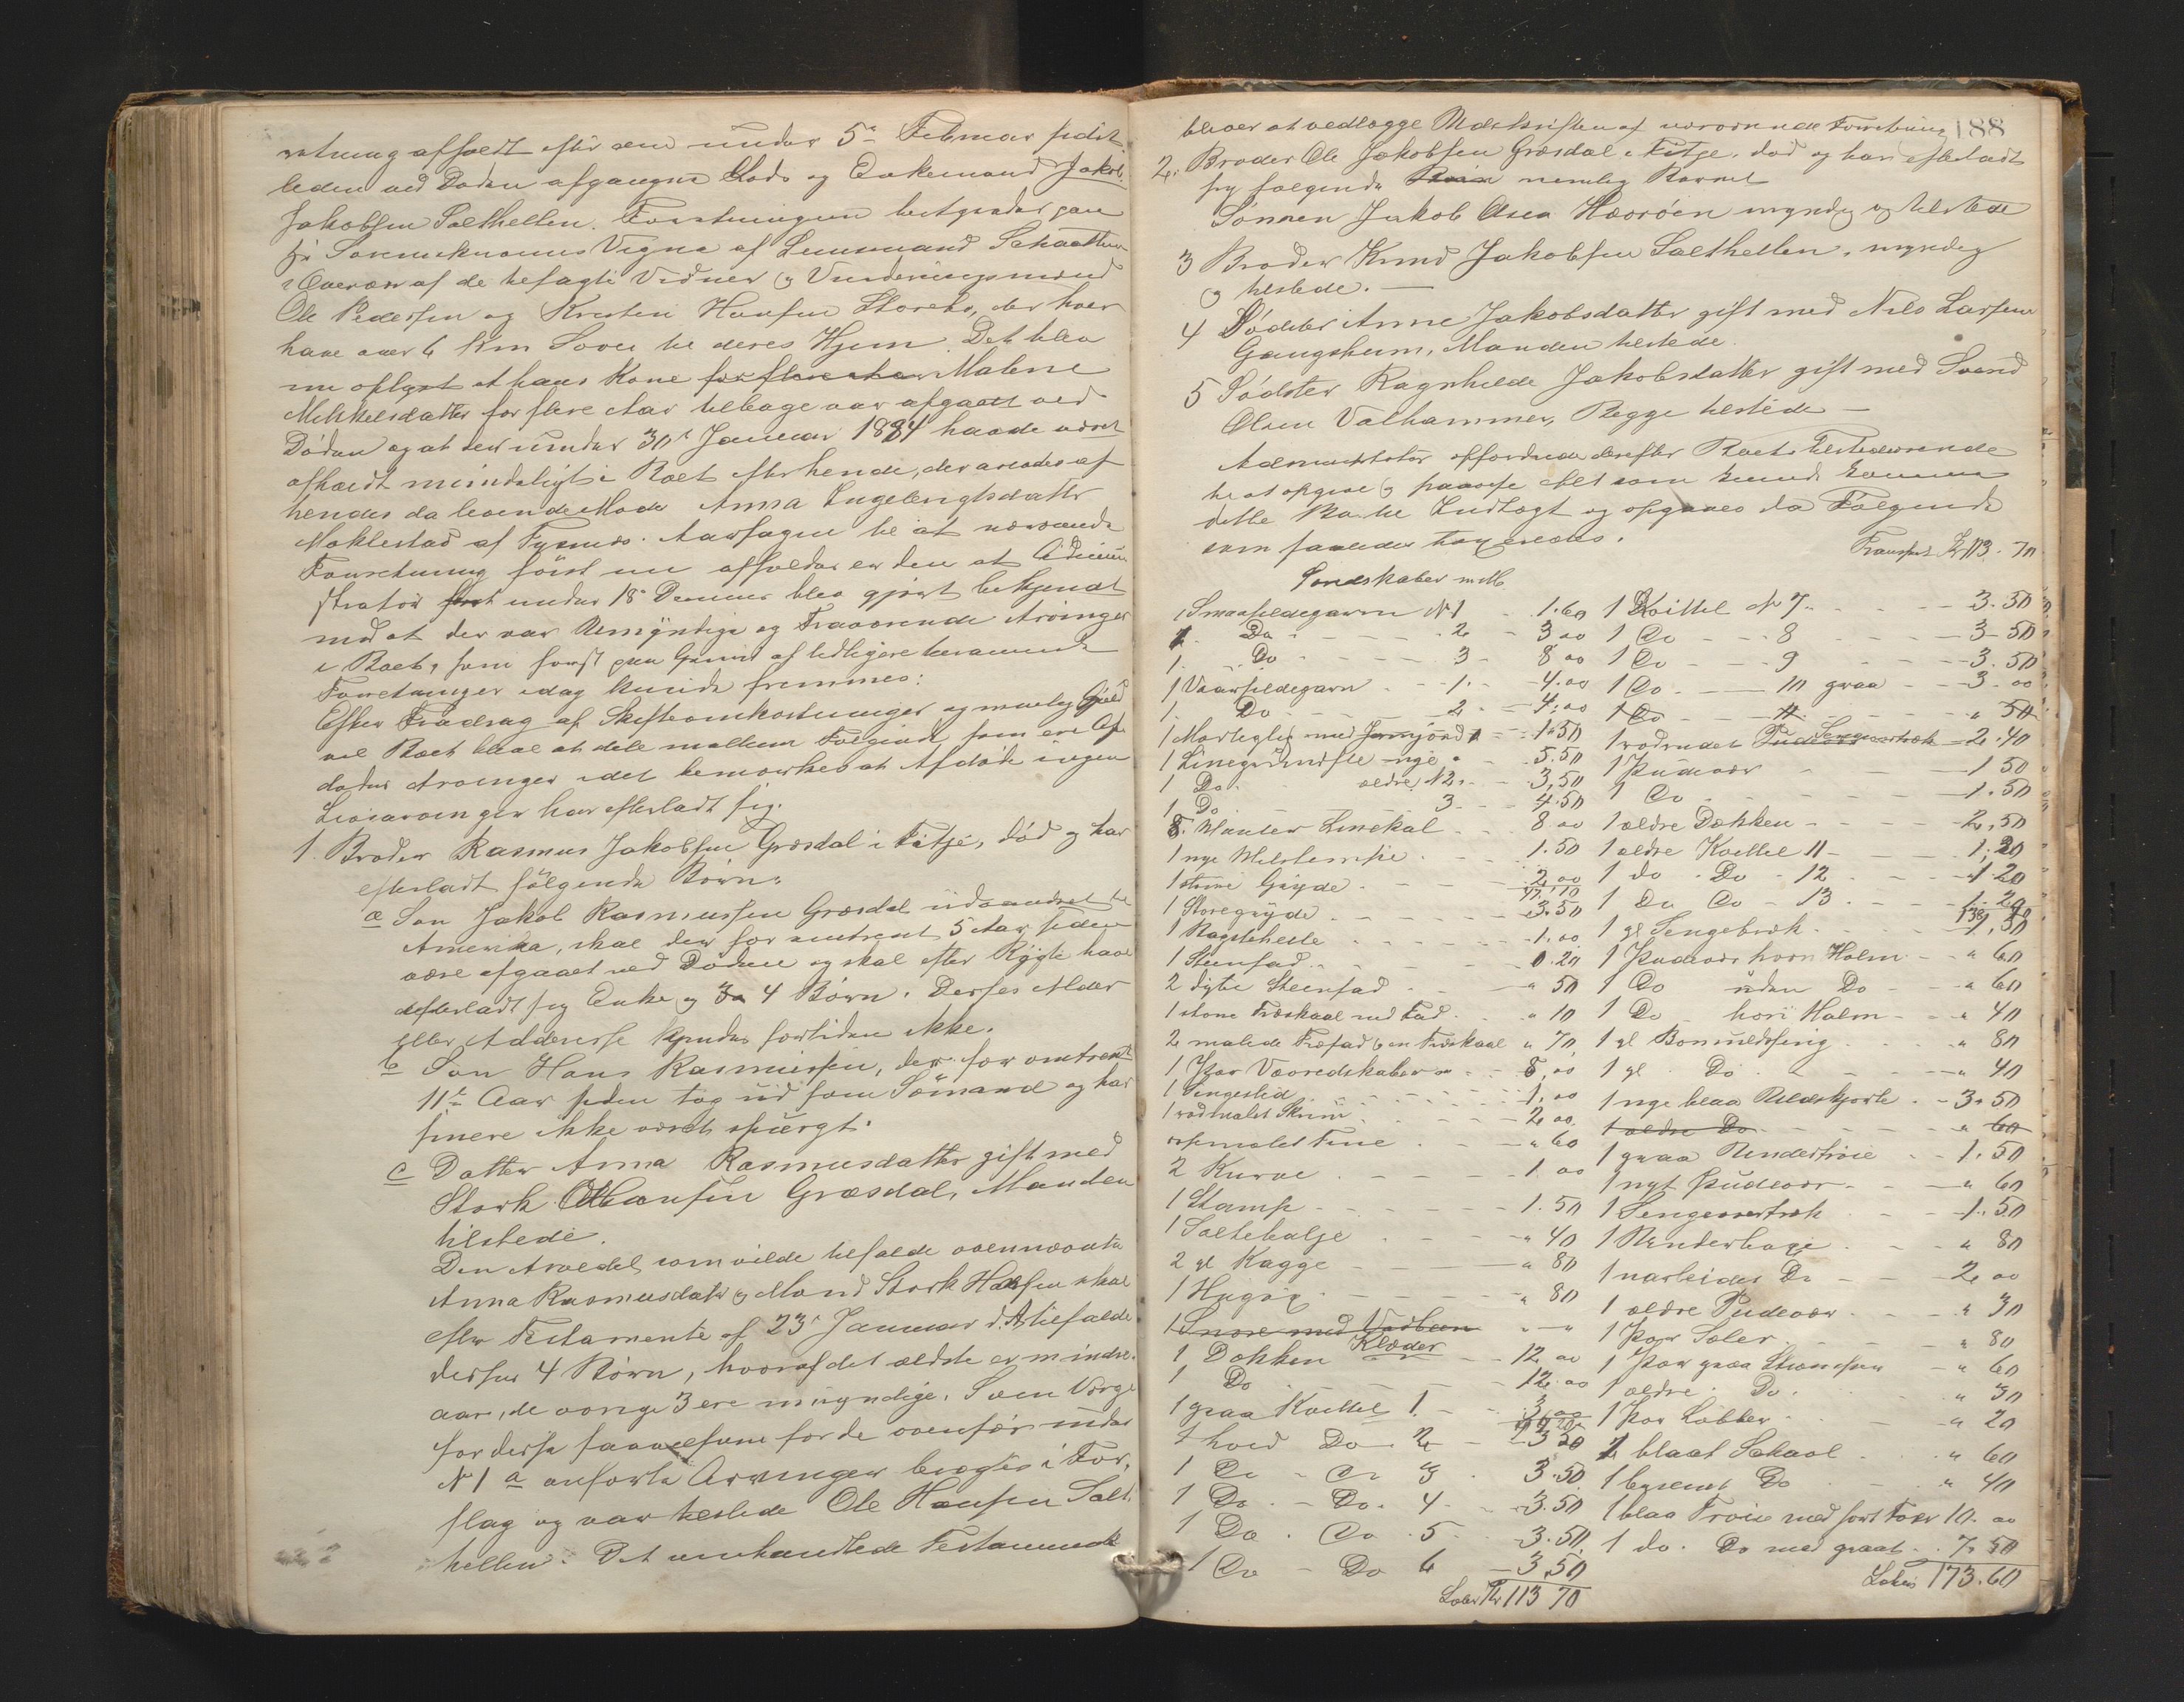 retning afholdt efter den under 5te Februar sidst
leden ved Døden afgangne Lods og Enkemand Jakob
Jakobsen Salthellen. Forretningen betjentes paa
Sorenskriverens Vegne af Lensmand Schaatun
i Overvær af de befagte Vidner og Vurderingsmænd
Ole Pedersen og Kristen Hansen Storebø, der hver
have over 6 Klm Søvei til deres Hjem. Det blev
nu oplyst at hans Kone Malene
Mikkelsdatter for flere Aar tilbage var afgaaet ved
Døden og at der under 30te Januar 1884 havde været
afholdt mindeligt i Boet efter hende, der arvedes af
hendes da levende Moder Anna Ingebrigtsdatter
Moklestad af Fusnes. Aarsagen til at nærværende
Forretning først nu afholdes er den at Admini
strator først under 18de Dennes blev gjort bekjendt
med at der var Umyndige og Fraværende Arvinger
i Boet, som først paa Grund af tidligere berammede
Forretninger idag kunde fremmes:
Efter Fradrag af Skifteomkostninger og mulig Gjæld
vil Boet blive at dele mellem Følgende som ere Af
dødes Arvinger idet bemærkes at Afdøde ingen
Livsarvinger har efterladt sig.
1. Broder Rasmus Jakobsen Græsdal i Fitje, død og har
efterladt følgende Børn:
a Søn Jakob Rasmussen Græsdal udvandret til
Amerika, skal der for omtrent 5 Aar siden
være afgaaet ved Døden og skal efter Rygte have
efterladt sig Enke og 3 a 4 Børn. Disses Alder
eller Addresse kjendes fortiden ikke.
b Søn Hans Rasmussen, der for omtrent
11te Aar siden tog ud som Sømand og har
senere ikke været spurgt.
c Datter Anna Rasmusdatter gift med
Stork Hansen Græsdal, Manden
tilstede.
Den Arvedel som vilde tilfalde ovennævnte
Anna Rasmusdatter og Mand Stork Hansen skal
efter Testamente af 23de Januar d.A. tilfalde
disses 4 Børn, hvoraf det ældste er mindre
aar, de øvrige 3 ere umyndige. Som Værge
for disse saavelsom for de ovenfor under
No 1 a anførte Arvinger bragtes i For,
slag og var tilstede Ole Hansen Salt
hellen. Det omhandlede Testamente
188
bliver at vedlægge Udskriften af nærværende Forretning
2. Broder Ole Jakobsen Græsdal i Fitje, død og har efterladt
sig følgende nemlig Barnet
Sønnen Jakob Olsen Hævrøen myndig og tilstede
3 Broder Knud Jakobsen Salthellen, myndig
og tilstede. —
4 Sødster Anne Jakobsdatter gift med Nils Larsen
Gangsheim, Manden tilstede.
5 Sødster Ragnhilde Jakobsdatter gift med Svend
Olsen Valhammer, Begge tilstede —
Administrator opfordrede derefter Boets Tilstedeværende
til at opgive og paavise Alt som kunde komme
dette Bo til Indtægt og opgaves da Følgende
som saaledes taxeredes.
Transport Kr 113. 70
Sønskaber m M.
1 Smaasildegarn No 1 - 1.60
1 Do - 2 - 3 00
1. Do - 3 - 8 00
1 Vaarsildegarn - 1. - 4.00
1. Do - 2 - 4.00
1 Morlegle med - 1.50
1 nye - 5.50
1 Do ældre, No 2 - 3,50
1 Do 3 - 4.50
8. - 8 00
1 nye - 1.50
1 større Gryde - 2 00
1 Storegryde - 3.50
1 Bagstehelle - 1.00
1 Steenfad - 0.20
2 dybe Steenfad - " 50
1 store Træskaal med Fad - " 10
2 malede Træfad 1 en Træskaal " 70
1 Par Vævredskaber - 8,00
1 Sengested - 1,00
1 rødmalet Skrin - 2 00
malet Tine - " 60
2 Kurve - 1 00
1 Stamp - 1.50
1 Saltebalje - " 40
2 gl Kagge - " 80
1 Hugøx - " 80
1 Snøre med
Klæder
1 Dækken - 12 00
1 Do - 12.00
1 graa Kvittel 1. - 3,00
1 hvid Do 2 - 3 50
1 Do - Do 3 - 3.50
1 Do - Do. 4 - 3.50
1 Do. Do . 5 - 3.50.
1 Do - Do 6 - 3,50
Lateris Kr 113 70
1 Kvittel No 7 - 3.50
1 Do - 8 - 3 50
1 Do - 9 - 3.50
1 Do - 10 graa - 3.00
1 Do - 11 - " 50
1 rødrudet Sengeovertræk - 2.40
1 Pudevær - 1 50
1 Do - 1.50
1 ældre Dækken - 2,50
1 ældre Kvittel 11 - 1,20
1 do . Do - 12 - 1 20
1 Do Do - 13 - 1.20
1 gl Sengetræk - 1,50
1 Pudevær hvori Halm - " 60
1 Do uden Do - " 60
1 Do hvori Halm - " 40
1 gl Bommeldssing - " 80
1 gl. Do - " 40
1 nye blaa Uldskjorte - 3.50
1 ældre Do - " 60
1 graa Undertrøie - 1.50
1 nyt Pudevær - " 60
1 Sengeovertræk - 1.50
1 Underbuxe - " 80
1 Do - 2 00
1 ældre Pudevær - " 30
1 Par Saler - " 80
1 Par graa Strømper - " 60
1 ældre. Do. " 30
1 Par Labber - " 20
1 blaat Schaol - " 60
1 Do " 40
1 blaa Trøie med sort Foer 10. 00
1 do. Do med graat - 7.50
Lateris 173.60